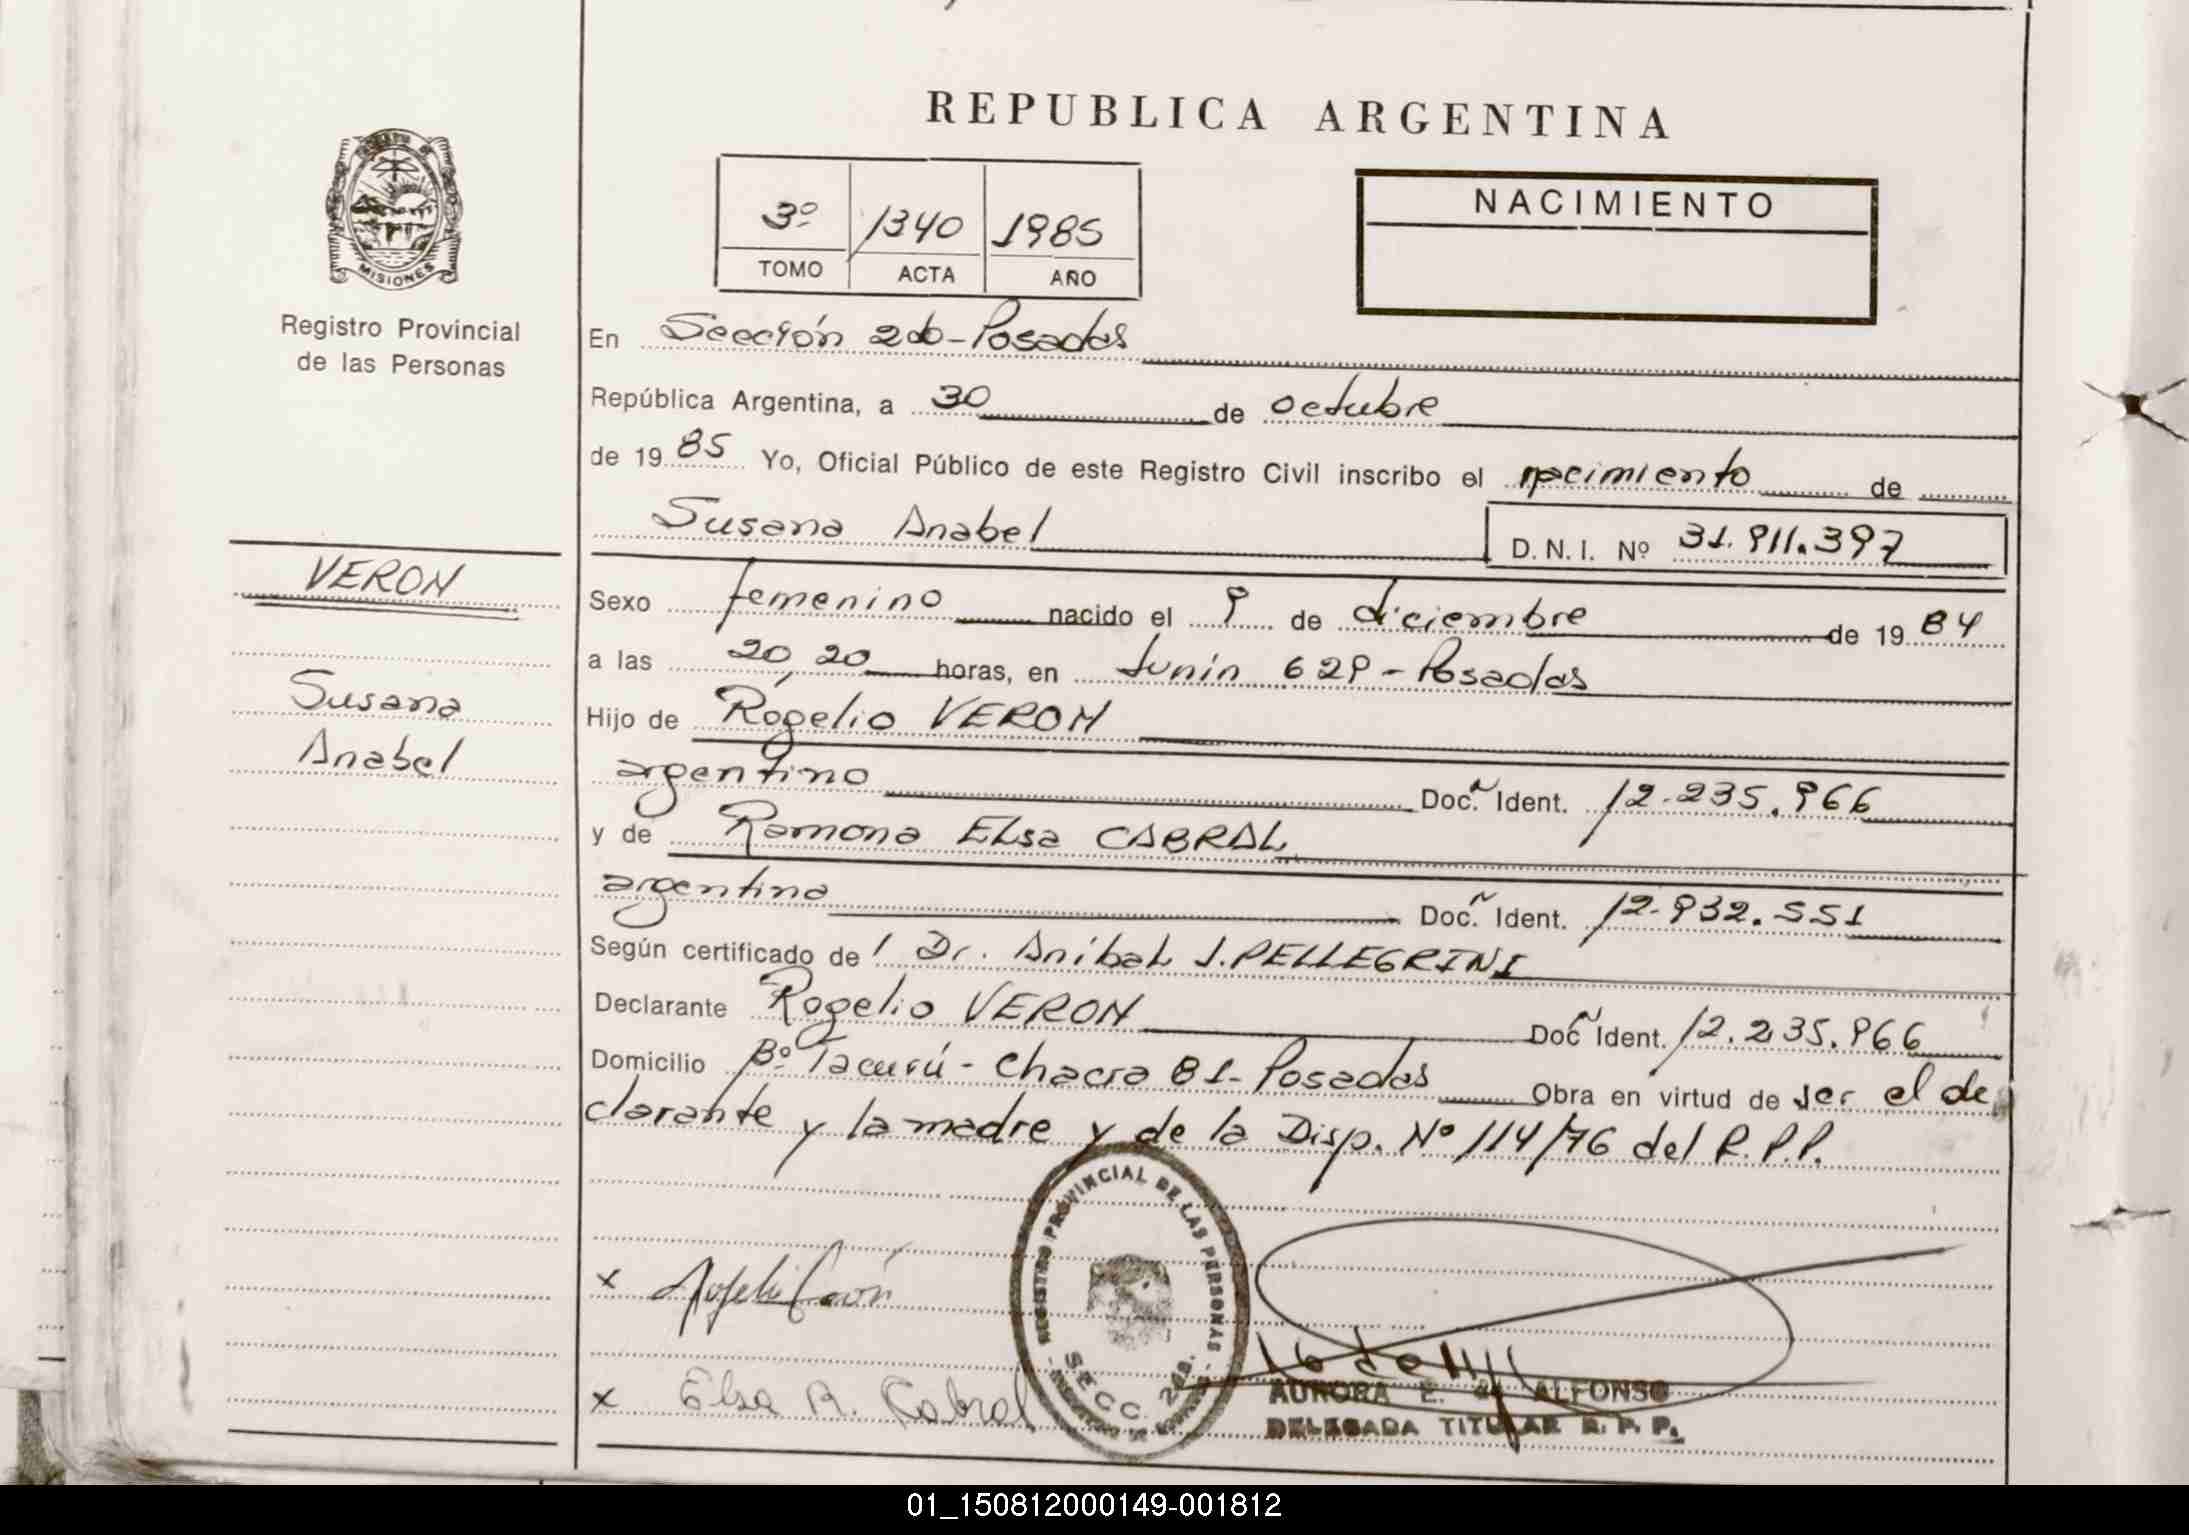 REPUBLICA ARGENTINA
3º 1340 1985
TOMO ACTA AÑO
NACIMIENTO
MISIONES
Registro Provincial
de las Personas
VERON
Susana
Anabel
En Sección 2da-Posadas
República Argentina, a 30 de octubre
de 1985 Yo, Oficial Público de este Registro Civil inscribo el nacimiento de
Susana Anabel D.N.I. Nº 31.911.397
Sexo femenino nacido el 9 de diciembre de 1984
a las 20,20 horas, en Junín 629-Posadas
Hijo de Rogelio VERON
argentino Doc. Ident. 12.235.966
y de Ramona Elsa CABRAL
argentina Doc. Ident. 12.932.551
Según certificado de l Dr. Aníbal J. PELLEGRINI
Declarante Rogelio VERON Doc Ident. 12.235.966
Domicilio Bº Tacurú-Chacra 81-Posadas Obra en virtud de ser el de
clarante y la madre y de la Disp. Nº 114/76 del R.P.P.
REGISTRO PROVINCIAL DE LAS PERSONAS
SECC. 2da.
x
x Elsa R. Cabral
AURORA E. de ALFONSO
DELEGADA TITULAR R. P. P.
01_150812000149-001812